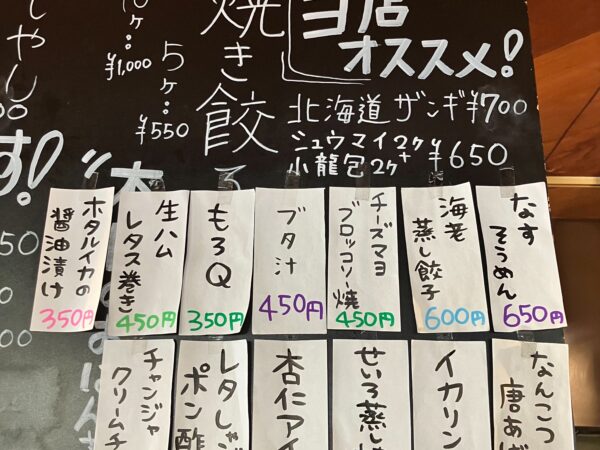 当店
オススメ!
北海道 ザンギ ¥700
シュウマイ2ケ
小龍包2ケ
¥650
焼き餃子
5ケ:
¥550
ケ:
¥1,000
なす
そうめん
650円
海老
蒸し餃子
600円
チーズマヨ
ブロッコリー焼
450円
ブタ汁
450円
もろQ
350円
生ハム
レタス巻き
450円
ホタルイカの
醤油漬け
350円
なんこつ
唐あげ
イカリン
せいろ蒸し
杏仁アイ
レタしゃぶ
ポン酢
チャンジャ
クリームチ